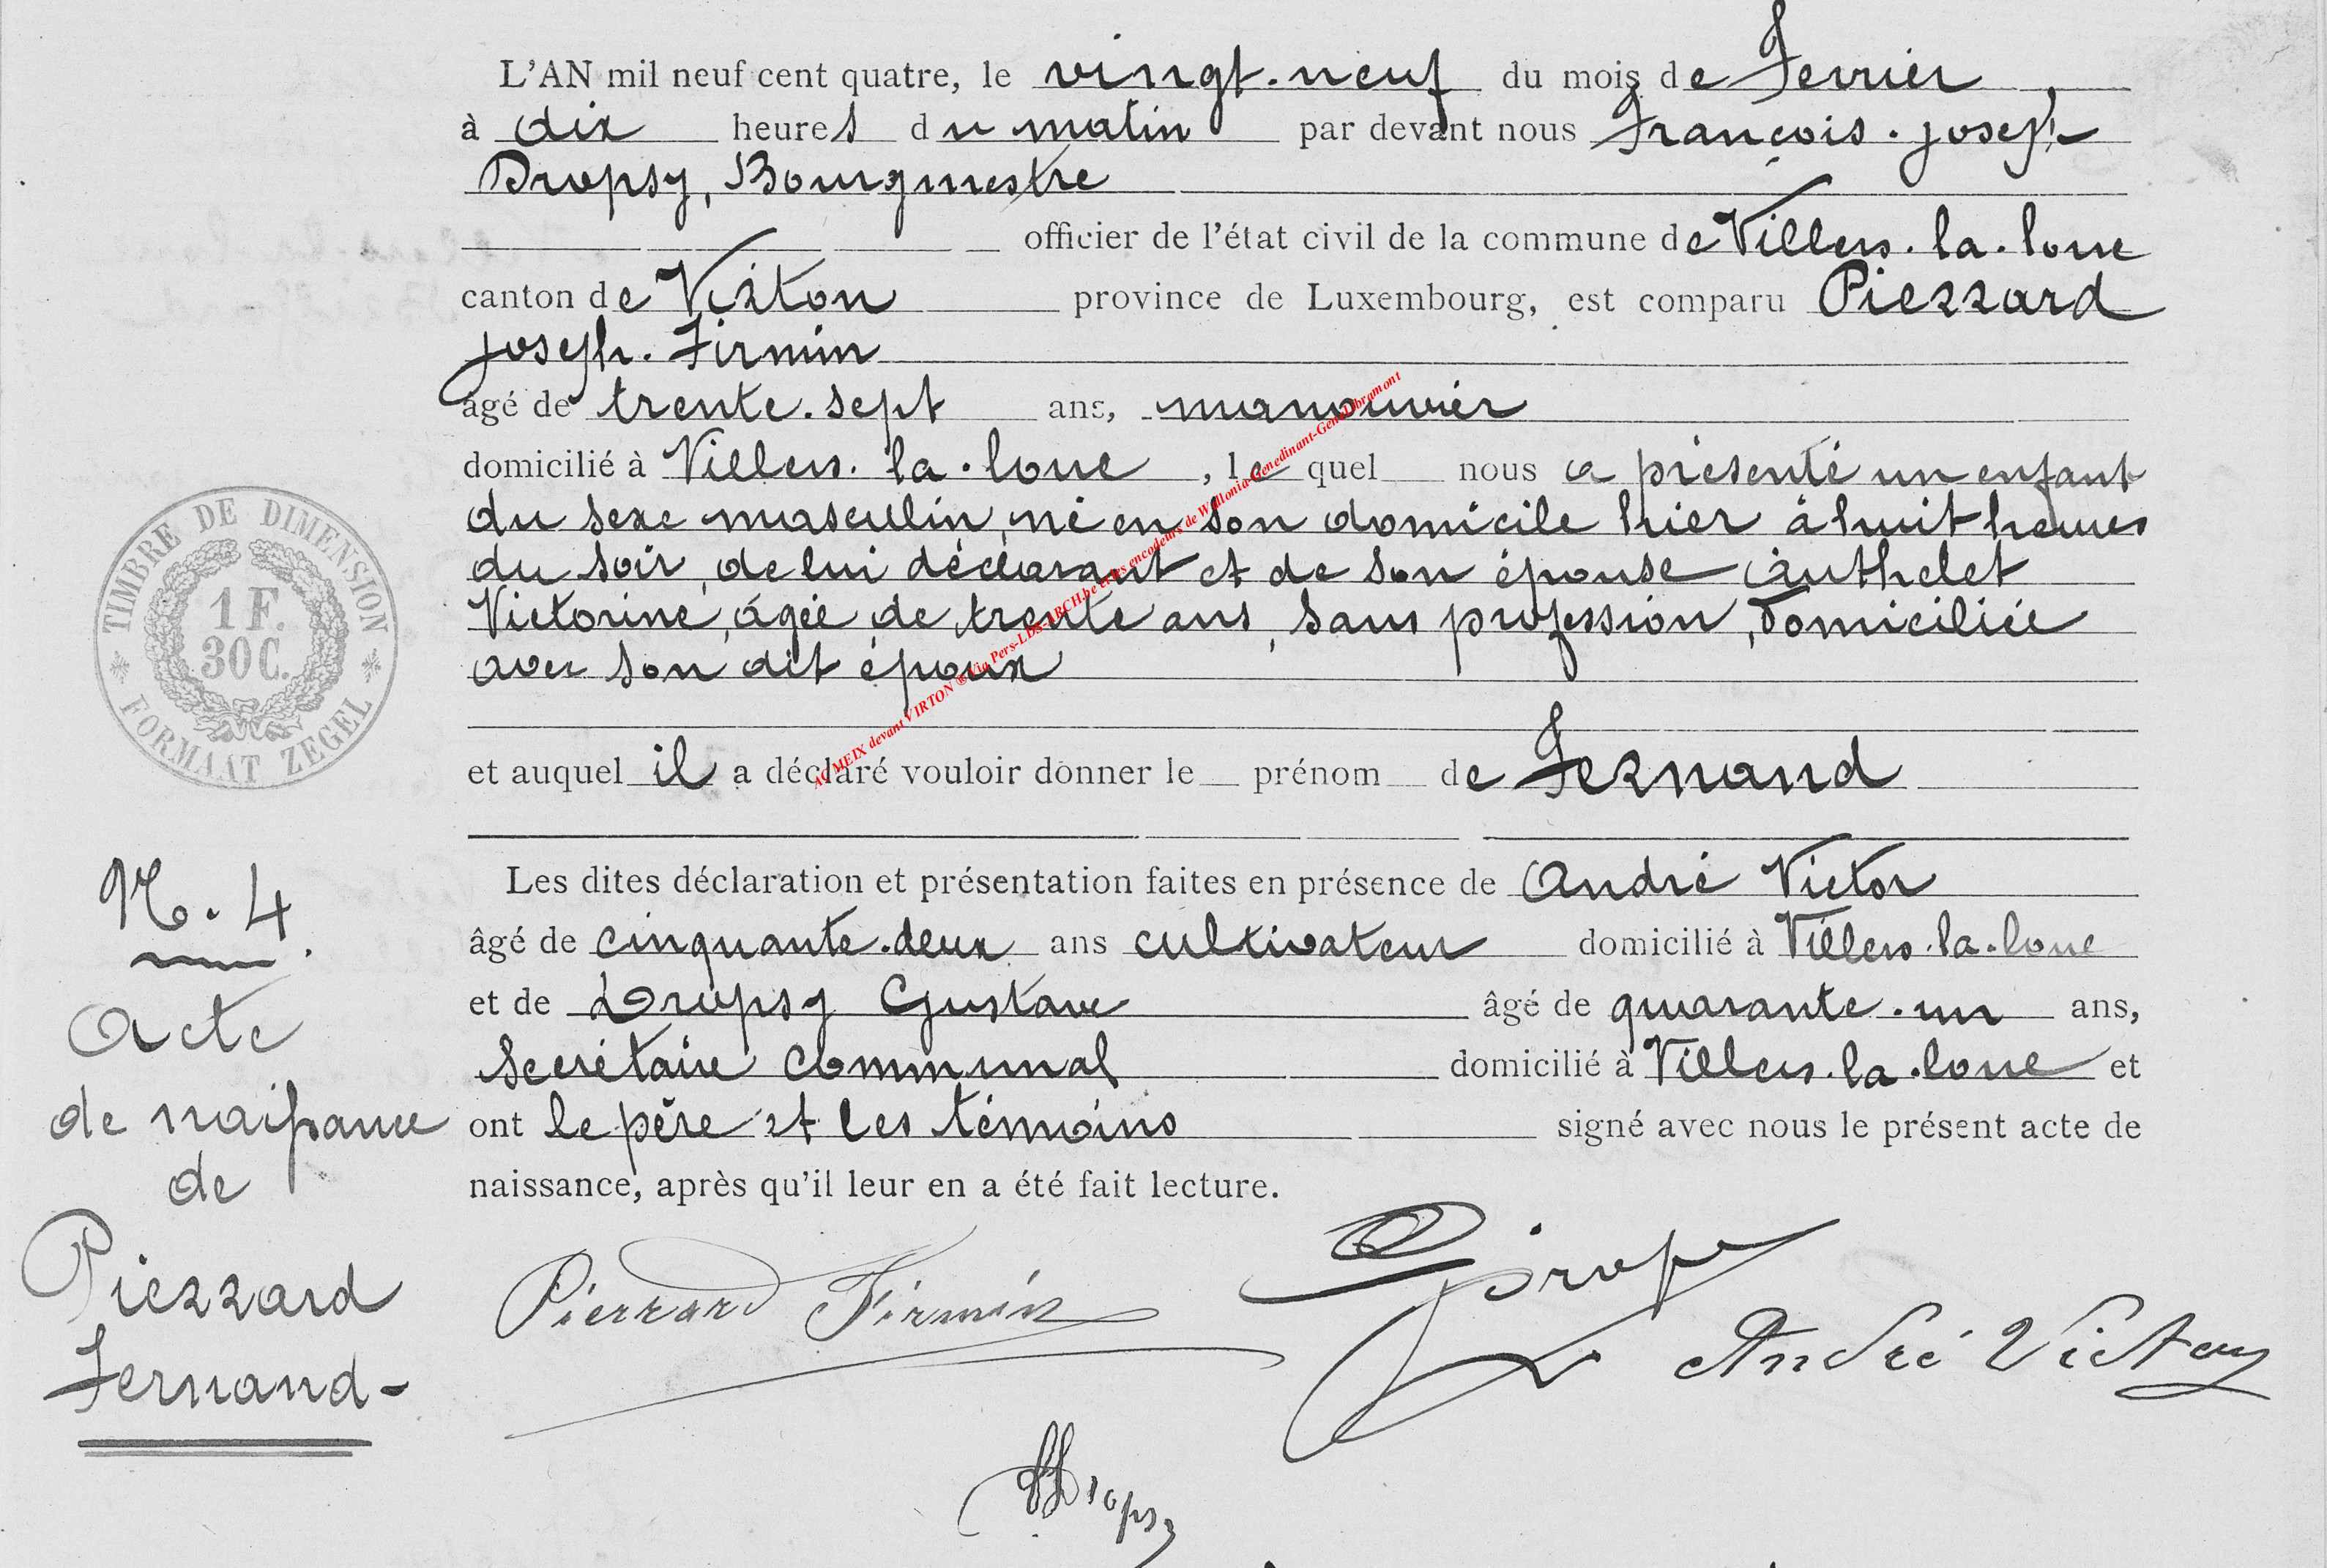 L'AN mil neuf cent quatre, le vingt-neuf du mois de Fevrier
à dix heures du matin par devant nous François-joseph
Dropsy, Bourgmestre
officier de l'état civil de la commune de Villers-la-loue
canton de Virton province de Luxembourg, est comparu Pierrard
joseph-Firmin
âgé de trente-sept ans, manouvrier
domicilié à Villers-la-loue, lequel nous a présenté un enfant
du sexe masculin, né en son domicile hier à huit heures
du soir, de lui déclarant et de son épouse Authelet
Victorine, âgée de trente ans, sans profession, domiciliée
avec son dit époux
et auquel il a déclaré vouloir donner le prénom de Fernand
Les dites déclaration et présentation faites en présence de André Victor
âgé de cinquante-deux ans cultivateur domicilié à Villers-la-loue
et de Dropsy Gustave âgé de quarante-un ans,
secrétaire communal domicilié à Villers-la-loue et
ont le père et les témoins signé avec nous le présent acte de
naissance, après qu'il leur en a été fait lecture.
Pierrard Firmin
Dropsy
André Victor
Dropsy
TIMBRE DE DIMENSION
1 F.
30 C.
FORMAAT ZEGEL
N. 4
Acte
de naissance
de
Pierrard
Fernand-
AC MEIX devant VIRTON ® Via Pers-LDS-ARCH.be et les encodeurs de Wallonia-Genedinant-Genealibramont